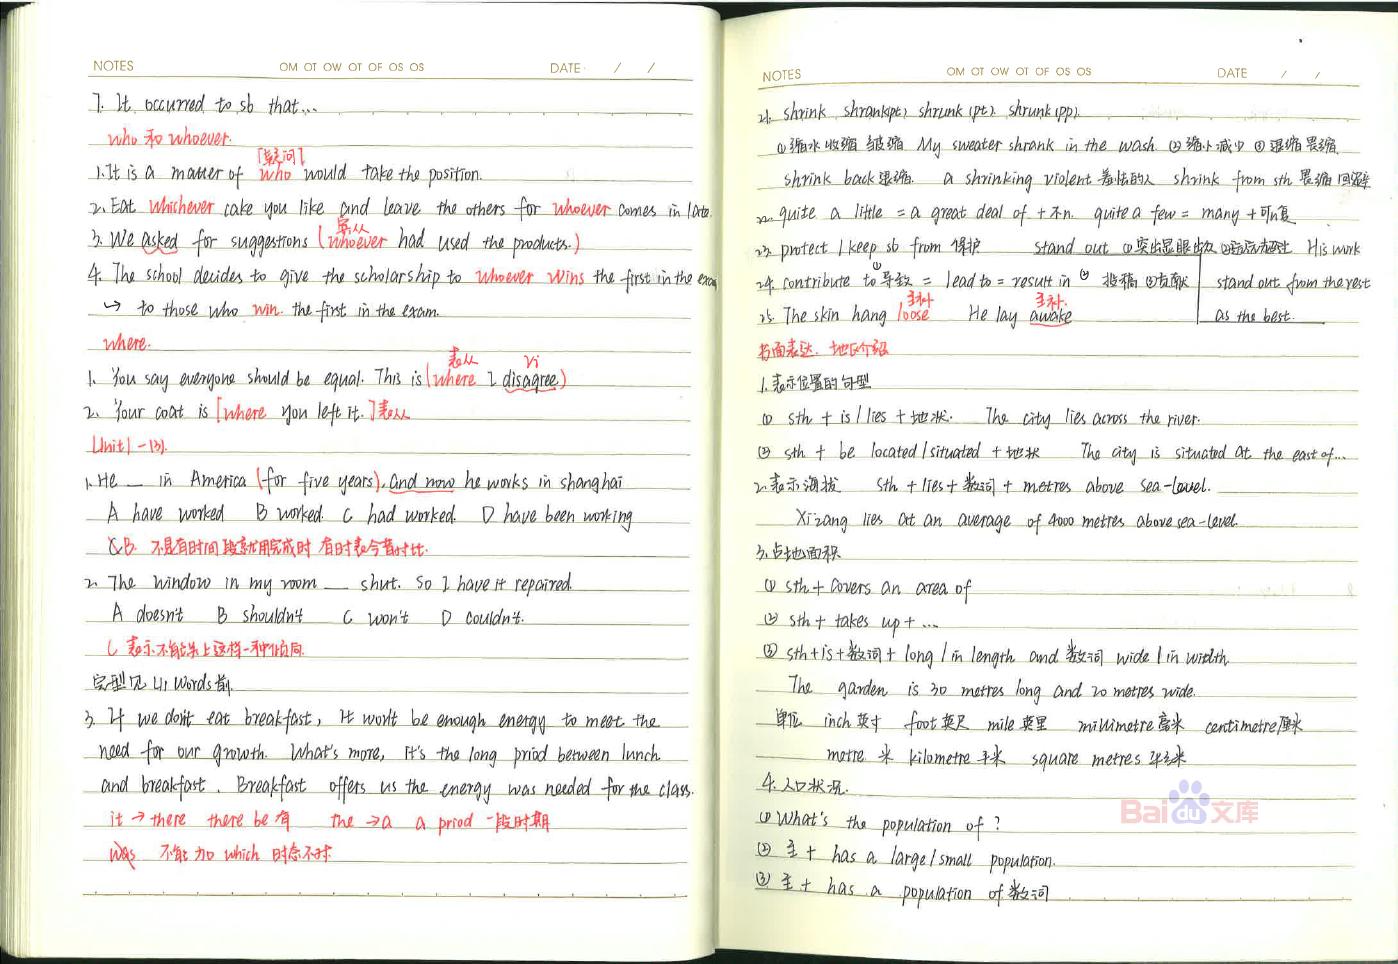 NOTES OM OT OW OT OF OS OS DATE / /
7. It occurred to sb that...
who 和 whoever.
[疑问]
1. It is a matter of who would take the position.
2. Eat whichever cake you like and leave the others for whoever comes in late.
宾从
3. We asked for suggestions (whoever had used the products.)
4. The school decides to give the scholarship to whoever wins the first in the exam
→ to those who win the first in the exam.
where.
表从 vi
1. You say everyone should be equal. This is (where I disagree)
2. Your coat is [where you left it.] 表从
Unit1-(3).
1. He __ in America (for five years), and now he works in shanghai
A have worked B worked. C had worked. D have been working
B. 不是有时间段就用完成时 有时表今昔对比.
2. The window in my room __ shut. So I have it repaired.
A doesn't B shouldn't C won't D couldn't.
C 表示不能
完型见 U1 Words前.
3. If we don't eat breakfast, it won't be enough energy to meet the
need for our growth. What's more, it's the long priod between lunch
and breakfast. Breakfast offers us the energy was needed for the class.
it → there there be 有 the → a a priod 一段时期
was 不能加 which 时态不对.
NOTES OM OT OW OT OF OS OS DATE / /
21. shrink shrank(pt) shrunk(pt) shrunk(pp).
①缩水 收缩 皱缩 My sweater shrank in the wash ②缩小减少 ③退缩畏缩.
shrink back 退缩. a shrinking violent 羞怯的人 shrink from sth 畏缩 回避
22. quite a little = a great deal of + 不n. quite a few = many + 可n复
23. protect / keep sb from 保护 stand out ①突出显眼 ② His work
24. contribute to ①导致 = lead to = result in ② 投稿 ③贡献 stand out from the rest
主补 主补.
25. The skin hang loose He lay awake as the best.
书面表达. 地区介绍
1. 表示位置的句型
① sth + is / lies + 地状. The city lies across the river.
② sth + be located / situated + 地状 The city is situated at the east of...
2. 表示海拔 sth + lies + 数词 + metres above sea-level.
Xizang lies at an average of 4000 metres above sea-level.
3. 占地面积
① sth + covers an area of
② sth + takes up + ...
③ sth + is + 数词 + long / in length and 数词 wide / in width.
The garden is 30 metres long and 20 metres wide.
单位 inch 英寸 foot 英尺 mile 英里 millimetre 毫米 centimetre 厘米
metre 米 kilometre 千米 square metres 平方米
4. 人口状况.
① What's the population of ?
② 主 + has a large / small population.
③ 主 + has a population of 数词
Baidu文库